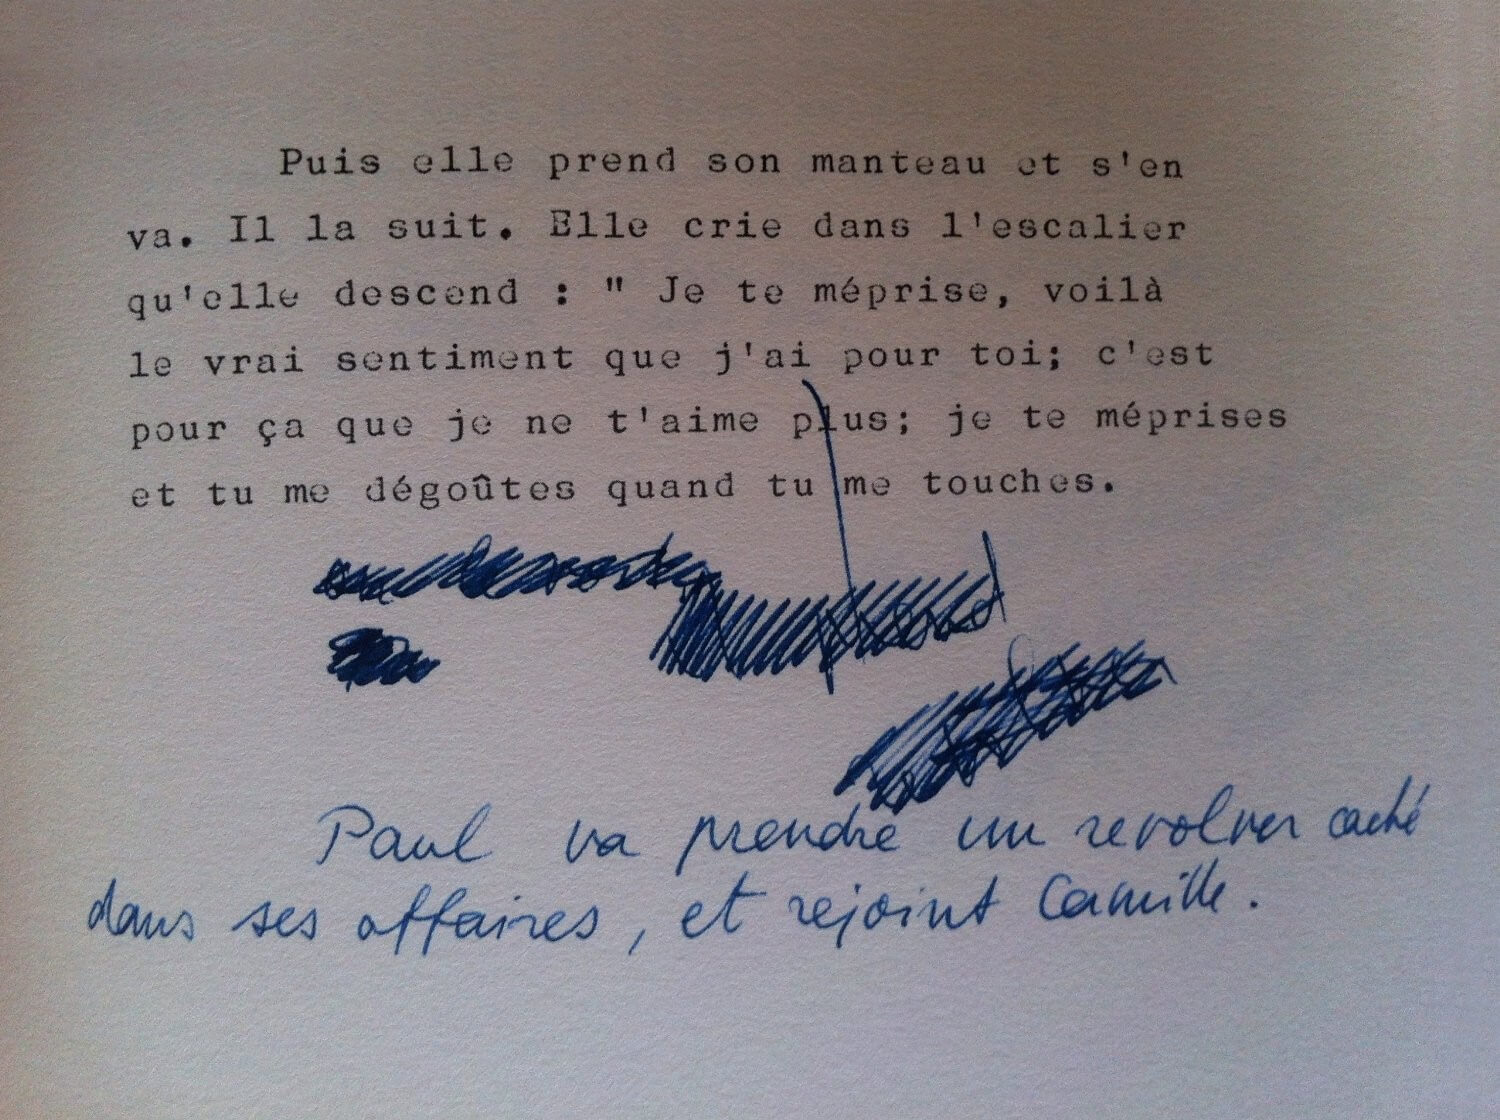 Puis elle prend son manteau et s'en
va. Il la suit. Elle crie dans l'escalier
qu'elle descend : " Je te méprise, voilà
le vrai sentiment que j'ai pour toi; c'est
pour ça que je ne t'aime plus; je te méprises
et tu me dégoûtes quand tu me touches.
Paul va prendre un revolver caché
dans ses affaires, et rejoint Camille.